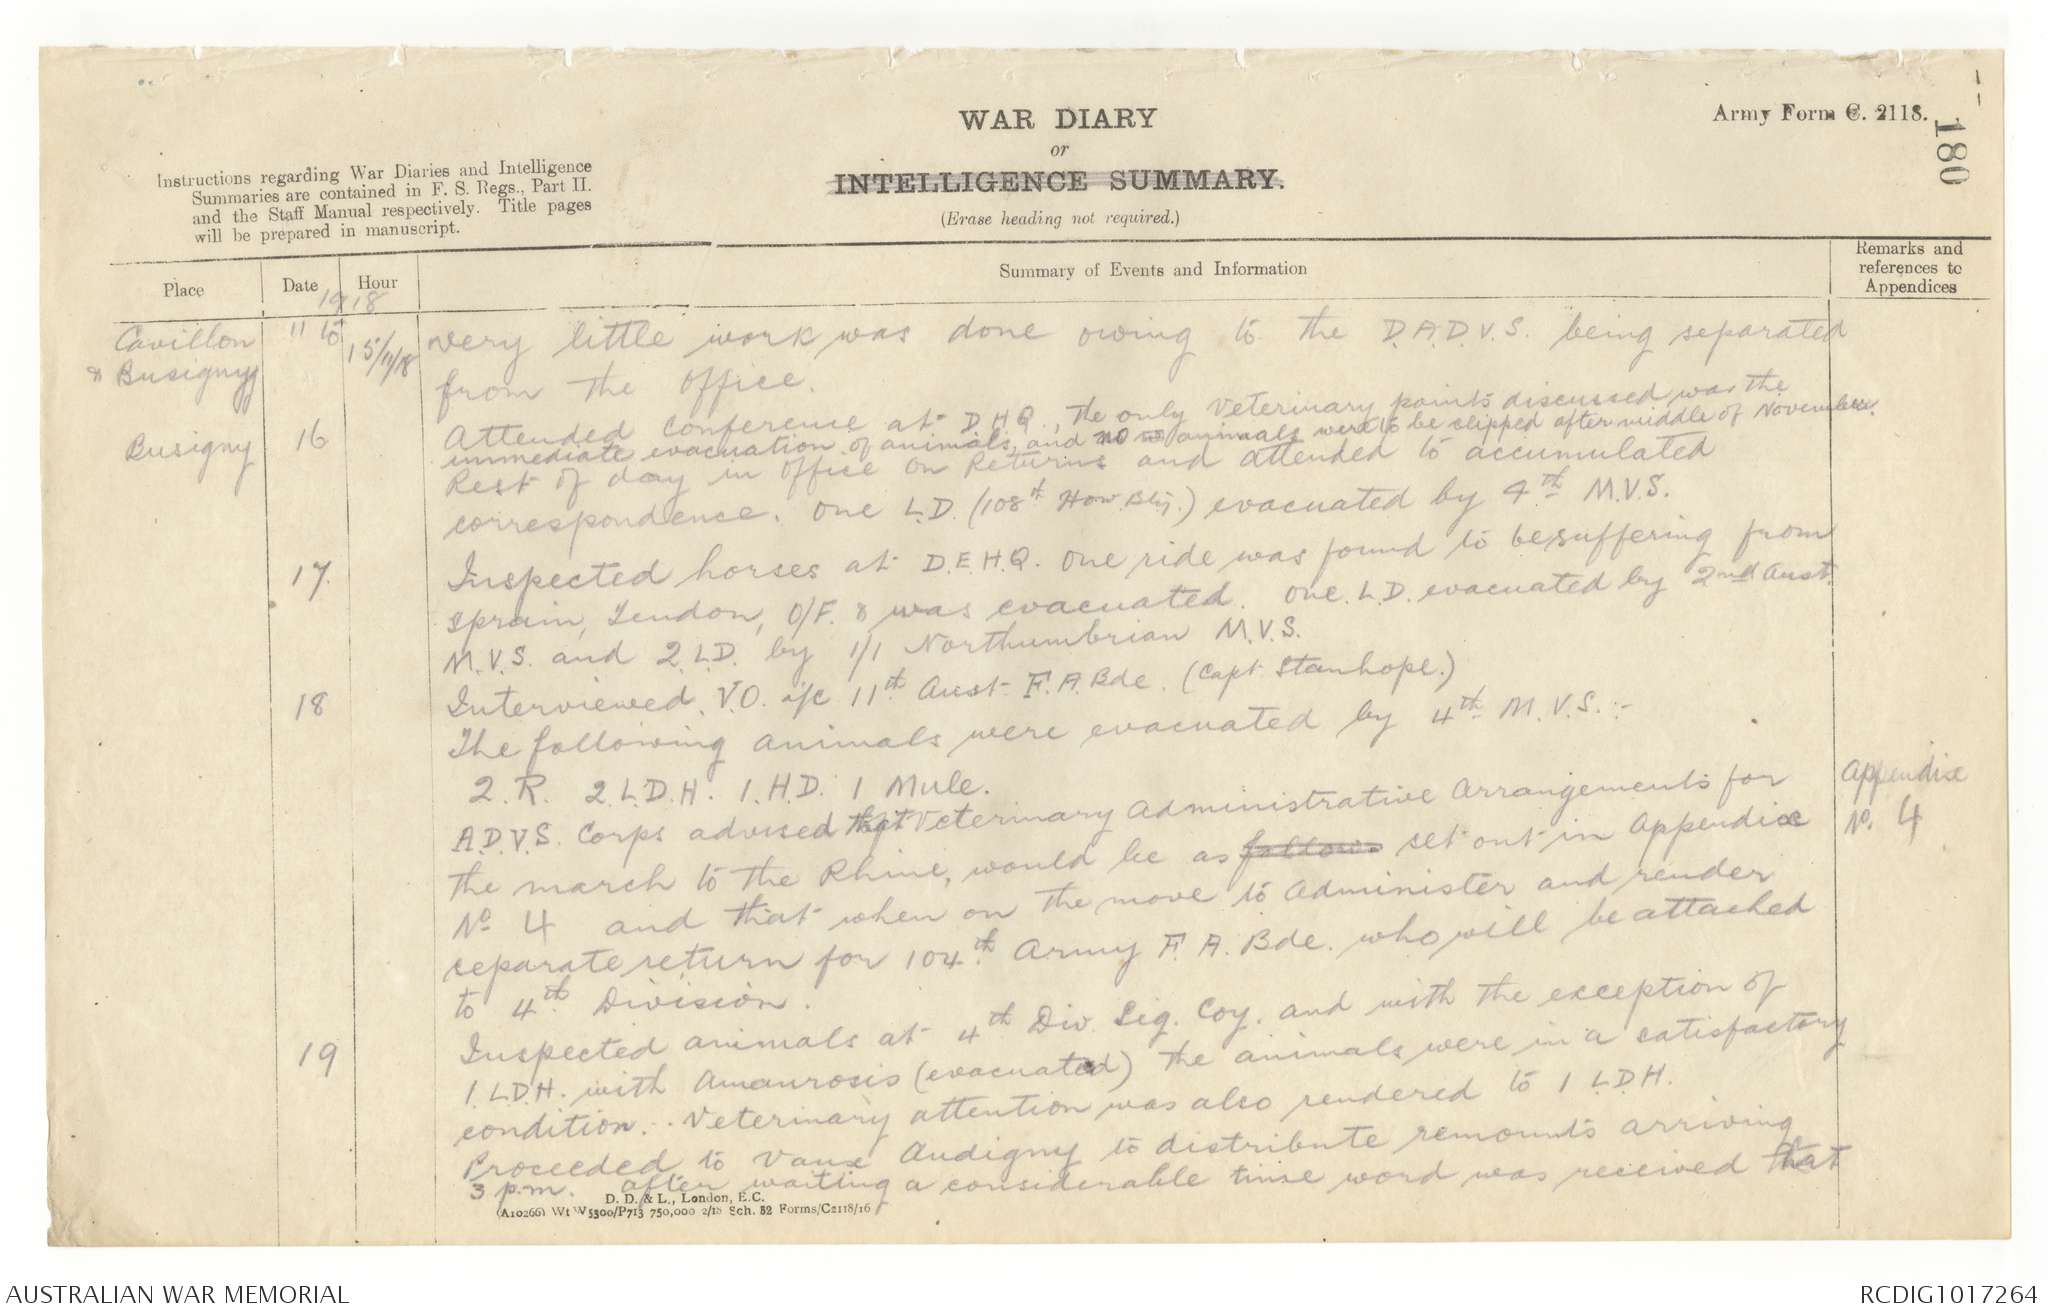 WAR DIARY
or
INTELLIGENCE SUMMARY.
(Erase heading not required.)
Army Form C. 2118.
180
Instructions regarding War Diaries and Intelligence
Summaries are contained in F. S. Regs., Part II.
and the Staff Manual respectively. Title pages
will be prepared in manuscript.
Place
Date
Hour
Summary of Events and Information
Remarks and
references to
Appendices
1918
Cavillon 11 to 15/11/18 very little work was done owing to the D.A.D.V.S. being separated
& Busigny from the office.
Busigny 16 Attended Conference at D.H.Q., The only Veterinary points discussed was the
immediate evacuation of animals, and no animals were to be clipped after middle of November.
Rest of day in office on Returns and attended to accumulated
correspondence. One L.D. (108th How. Bty.) evacuated by 4th M.V.S.
17. Inspected horses at D.E.H.Q. One ride was found to be suffering from
sprain, Tendon, O/F. & was evacuated. One L.D. evacuated by 2nd Aust.
M.V.S. and 2 L.D. by 1/1 Northumbrian M.V.S.
18 Interviewed V.O. i/c 11th Aust F.A. Bde. (Capt Stanhope.)
The following animals were evacuated by 4th M.V.S. :-
2.R. 2 L.D.H. 1.H.D. 1 Mule.
A.D.V.S. Corps advised that Veterinary Administrative Arrangements for
the march to the Rhine, would be as follows set out in Appendix
No 4 and that when on the move to administer and render
separate return for 104th Army F.A. Bde. who will be attached
to 4th Division.
Appendix
No. 4
19 Inspected animals at 4th Div. Sig. Coy. and with the exception of
1 L.D.H. with Amaurosis (evacuated) the animals were in a satisfactory
condition. Veterinary attention was also rendered to 1 L.D.H.
Proceeded to Vaux Andigny to distribute remounts arriving
3 p.m. after waiting a considerable time word was received that
D. D. & L., London, E.C.
(A10266) Wt W5300/P713 750,000 2/18 Sch. 52 Forms/C2118/16
AUSTRALIAN WAR MEMORIAL
RCDIG1017264